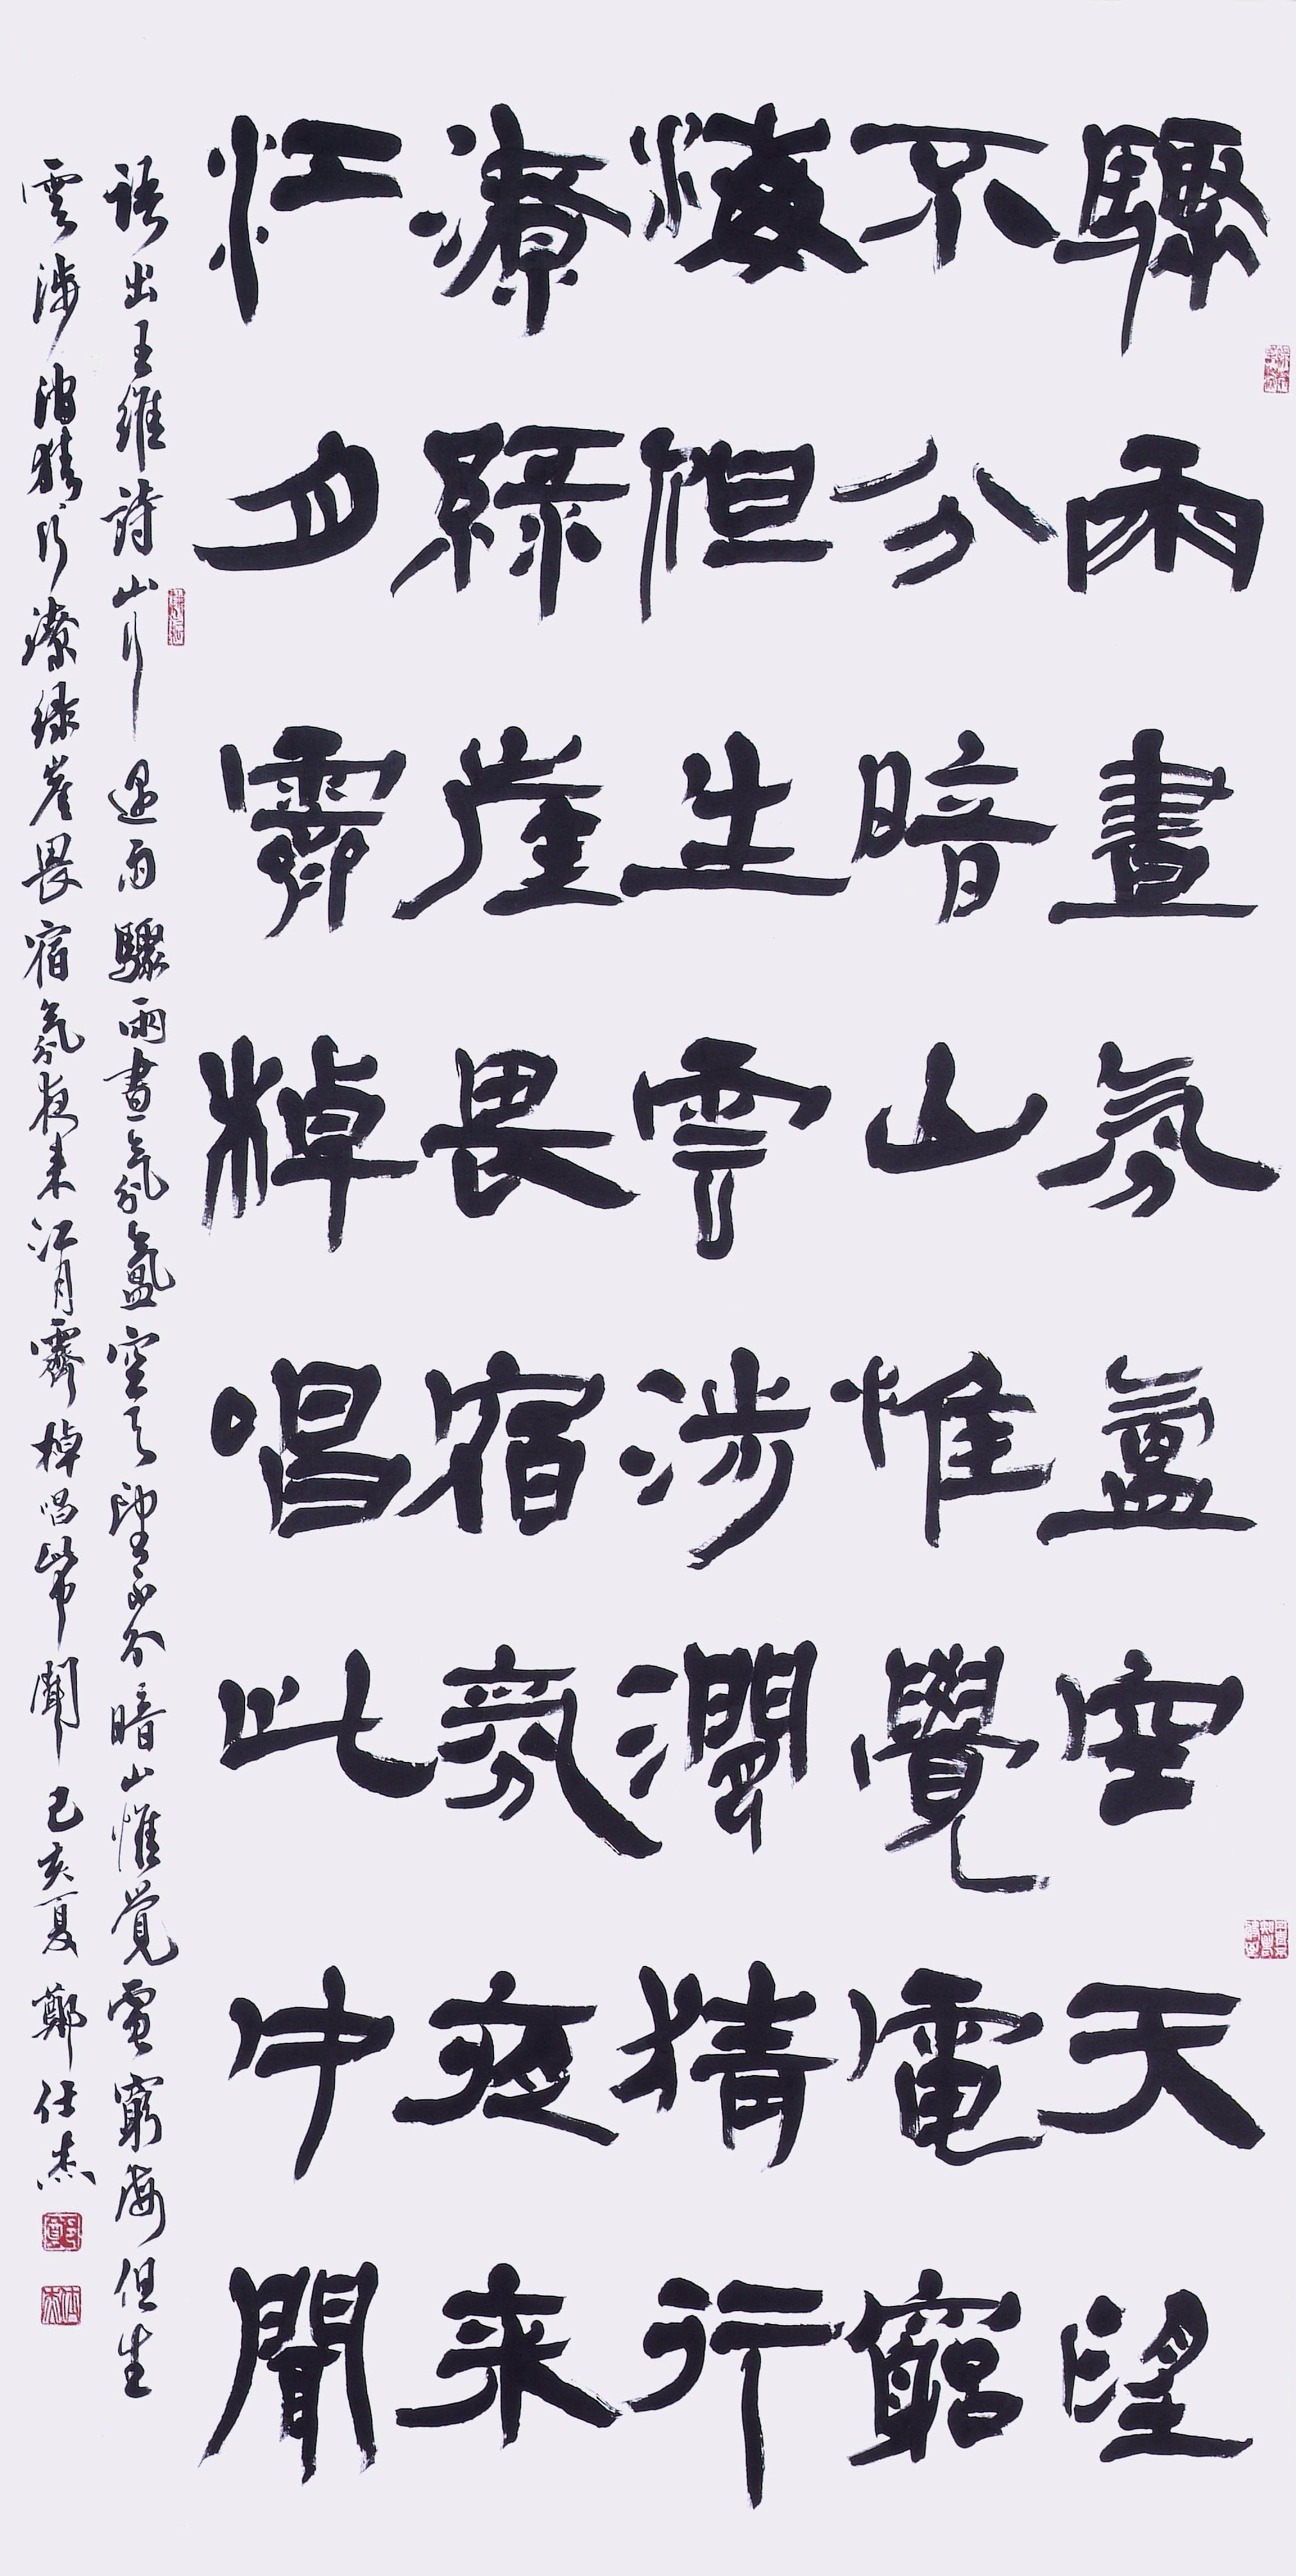 驟雨晝氛氳空天望
不分暗山惟覺電窮
海但生雲涉澗猜行
潦緣崖畏宿氛夜來
江月霽棹唱此中聞
語出王維詩山行遇雨驟雨晝氛氳空天望不分暗山惟覺電窮海但生
雲涉澗猜行潦緣崖畏宿氛夜來江月霽棹唱此中聞己亥夏鄭仕杰